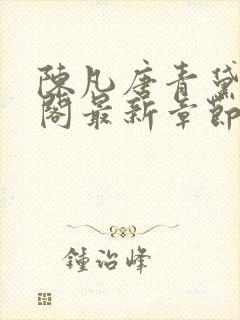 陳凡唐青黛
閣最新章節
鍾治峰